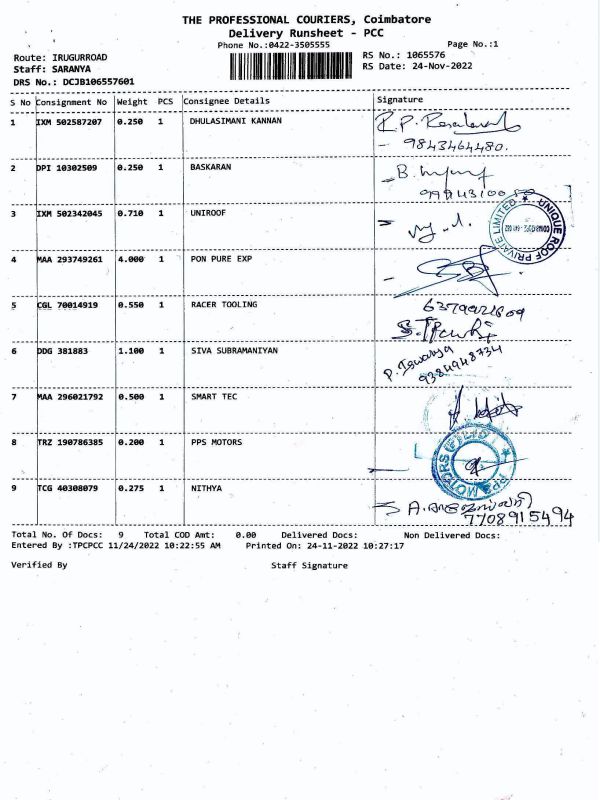 THE PROFESSIONAL COURIERS, Coimbatore
Delivery Runsheet - PCC
Phone No.:0422-3505555
Page No.:1
Route: IRUGURROAD
RS No.: 1065576
Staff: SARANYA
RS Date: 24-Nov-2022
DRS No.: DCJB106557601
S No Consignment No Weight PCS Consignee Details Signature
1 IXM 502587207 0.250 1 DHULASIMANI KANNAN R.P.
- 9843464480.
2 DPI 10302509 0.250 1 BASKARAN B.
3 IXM 502342045 0.710 1 UNIROOF
UNIQUE ROOF PRIVATE LIMITED
4 MAA 293749261 4.000 1 PON PURE EXP
5 CGL 70014919 0.550 1 RACER TOOLING
6 DDG 381883 1.100 1 SIVA SUBRAMANIYAN P. Iswarya
9384948734
7 MAA 296021792 0.500 1 SMART TEC
8 TRZ 190786385 0.200 1 PPS MOTORS
PPS MOTORS (P) LTD
9 TCG 40308079 0.275 1 NITHYA
7708915494
Total No. Of Docs: 9 Total COD Amt: 0.00 Delivered Docs: Non Delivered Docs:
Entered By :TPCPCC 11/24/2022 10:22:55 AM Printed On: 24-11-2022 10:27:17
Verified By Staff Signature